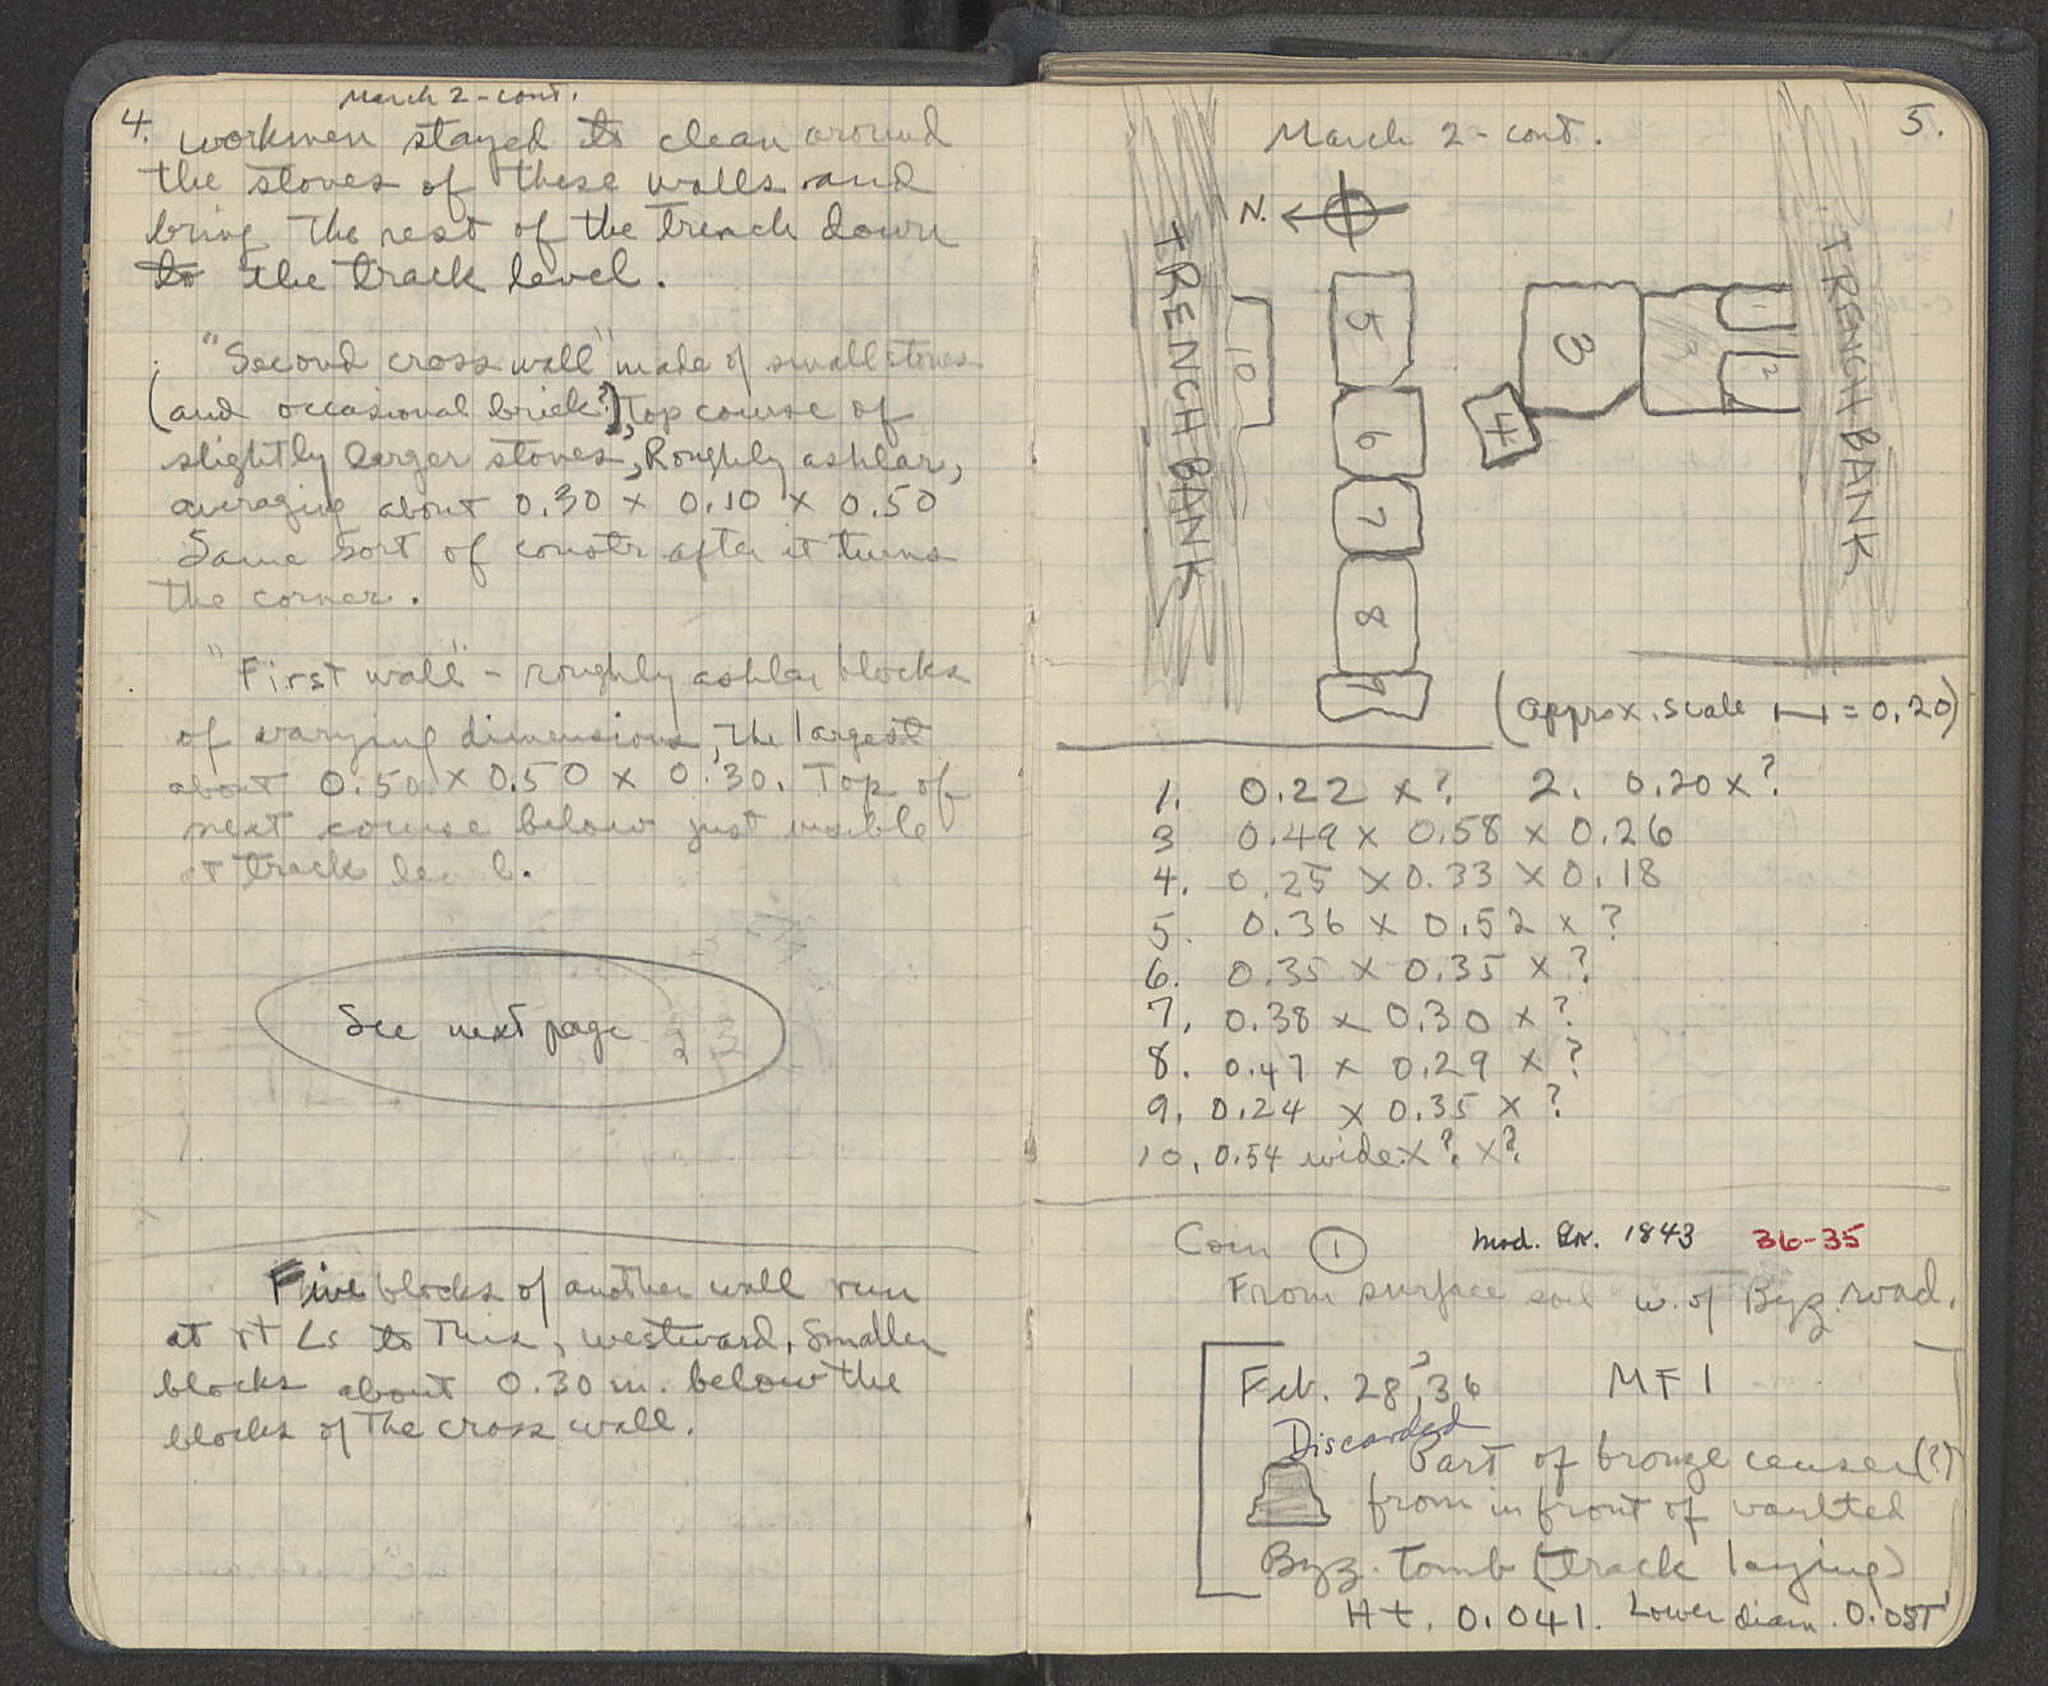 March 2 - cont.
4. workmen stayed to clean around
the stones of these walls and
bring the rest of the trench down
to the track level.
"Second cross wall" made of small stones
(and occasional brick?), Top course of
slightly larger stones, Roughly ashlar,
averaging about 0.30 x 0.10 x 0.50
Same sort of constr after it turns
the corner.
"First wall" - roughly ashlar blocks
of varying dimensions, the largest
about 0.50 x 0.50 x 0.30. Top of
next course below just visible
at track level.
See next page
Five blocks of another wall run
at rt ∠s to this, westward. Smaller
blocks about 0.30 m. below the
blocks of the cross wall.
March 2 - cont.
5.
N.
TRENCH BANK
10
5
6
7
8
9
3
4
1
2
TRENCH BANK
(approx. scale = 0.20)
1. 0.22 x ? 2. 0.20 x ?
3 0.49 x 0.58 x 0.26
4. 0.25 x 0.33 x 0.18
5. 0.36 x 0.52 x ?
6. 0.35 x 0.35 x ?
7. 0.38 x 0.30 x ?
8. 0.47 x 0.29 x ?
9. 0.24 x 0.35 x ?
10. 0.54 wide x ? x ?
Coin 1 mod. Gr. 1843 36-35
From surface soil w. of Byz. road.
Feb. 28, '36 MF 1
Discarded
Part of bronze censer (?)
from in front of vaulted
Byz. tomb (track laying)
Ht. 0.041. Lower diam.